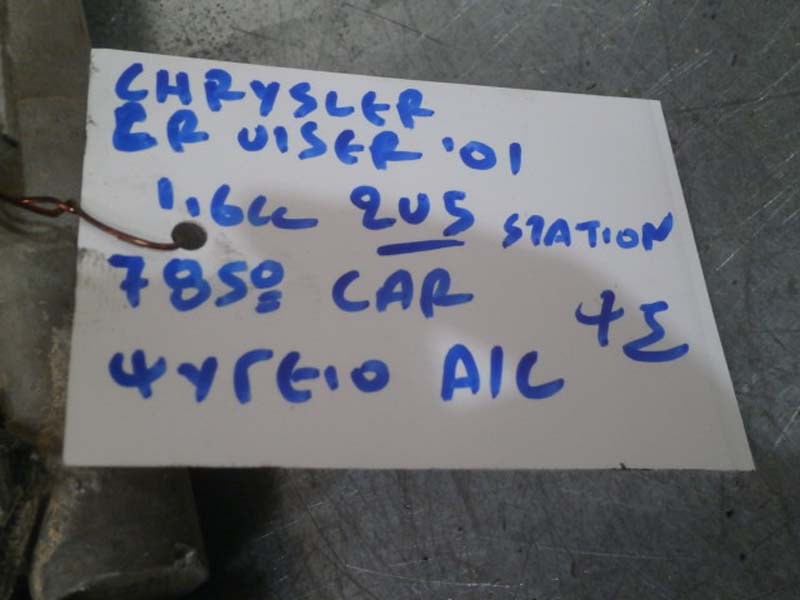 CHRYSLER
CR UISER '01
1.6cc 2US STATION
7850 CAR
ΨΣ
ΨΥΓΕΙΟ A/C